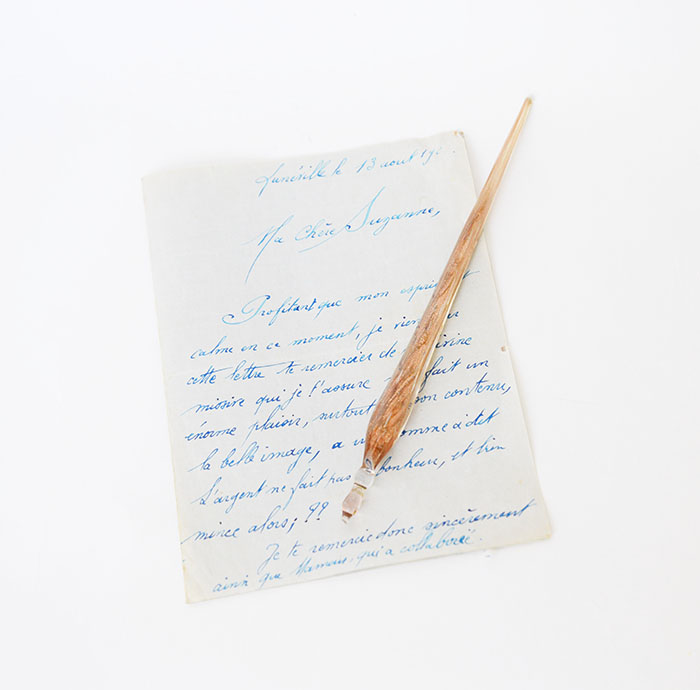 Lunéville le 13 aout 19
Ma Chère Suzanne,
Profitant que mon esprit
calme en ce moment, je
cette lettre te remercier de
missive qui je t'assure fait un
énorme plaisir, surtout son contenu,
la belle image, a homme a dit
L'argent ne fait pas bonheur, et bien
mince alors; ??
Je te remercie donc sincèrement
ainsi que Maman, qui a collaboré.